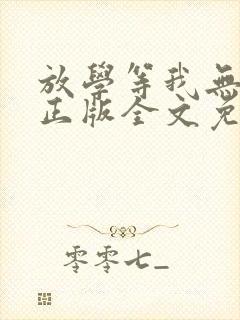 放學等我無
正版全文免
零零七_